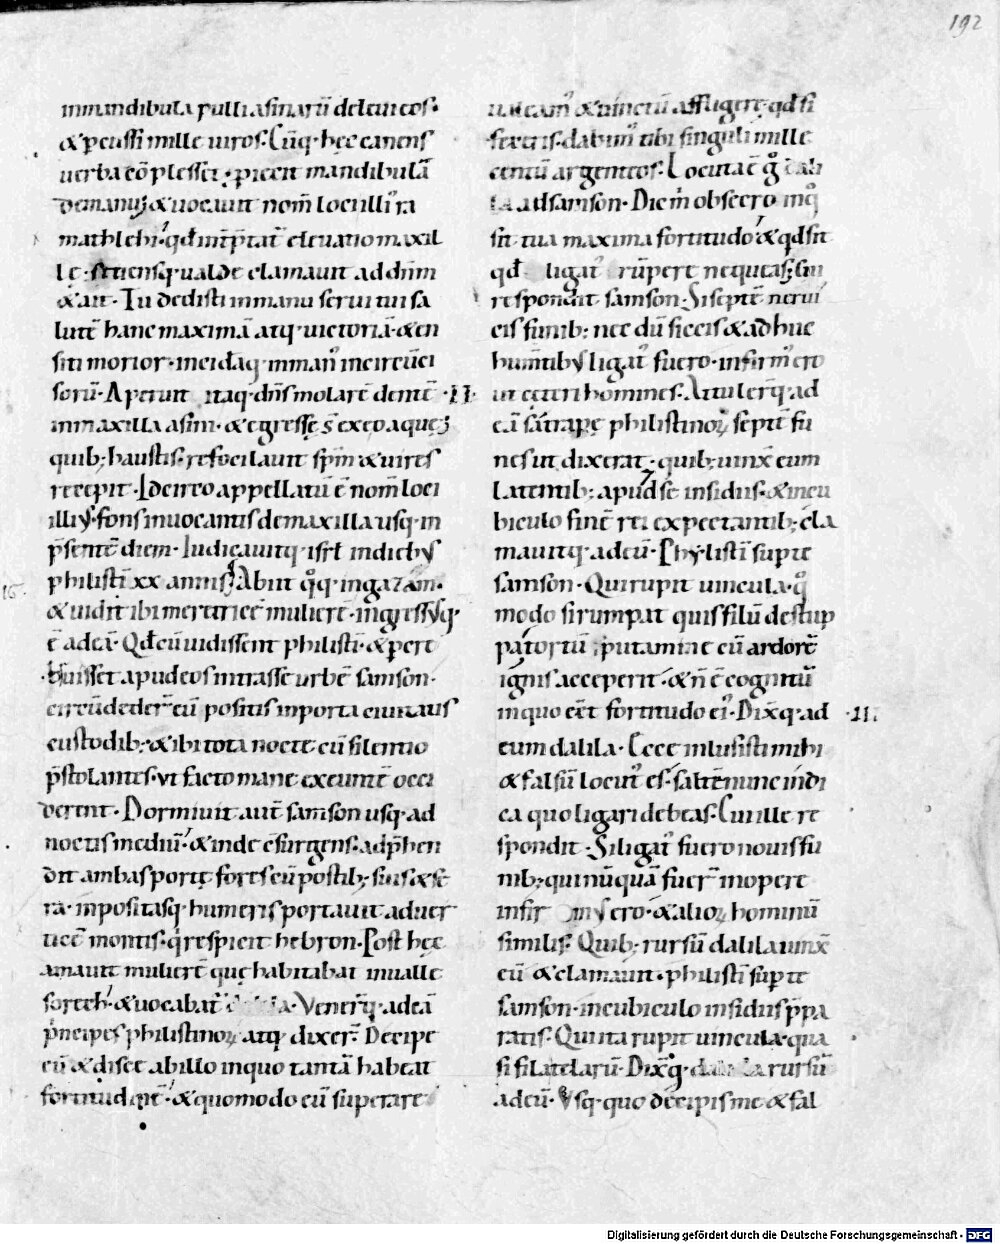 192
inmandibula pulli asinarū deleui eos·
& ꝑcussi mille uiros· Cūq· hęc canens
uerba cōplesset· ꝓiecit mandibulā
demanu· & uocauit nom̄ loci illi᾿ ra
mathlehi· qđ int̄ptat̄ eleuatio maxil
lę· Sitiensq· ualde clamauit ad dn̄m
& ait· Tu dedisti inmanu serui tui sa
lutē hanc maximā atq· uictoriā· & en
siti morior· incidāq· inman᾿ incircūci
sorū· Aperuit itaq· dn̄s molarē dentē ·II·
inmaxilla asini· & egressę s̄ ex eo aquę;
quib; haustis· refocilauit sp̄m & uires
recepit· Idcirco appellatū ē nom̄ loci
illi᾿· fons inuocantis demaxilla usq· in
p̄sentē diem· Iudicauitq· isrl̄ indieb᾿
philistī xx annis· Abiit q̊q· ingazam·
16·
& uidit ibi meretricē mulierē· ingress᾿q·
ē adeā· Qđ cū uidissent philistī· & ꝑcre
buisset apud eos intrasse urbē samson·
circūdeder̄ eū positis inporta ciuitatis
custodib;· & ibi tota nocte cū silentio
p̄stolantes· ut facto mane exeuntē occi
derent· Dormiuit aut̄ samson usq· ad
noctis mediū· & inde c̄surgens· adp̄hen
dit ambas portę fores cū postib; suis & se
ra· inpositasq· humeris portauit aduer
ticē montis· q́ respicit hebron· Post hęc
amauit mulierē quę habitabat inualle
sorech· & uocabat᾿ dalila· Venerr̄q· adeā
p̄ncipes philistinoꝝ atq· dixer̄· Decipe
eū & disce abillo inquo tantā habeat
fortitudinē· & quomodo eū superare
ualeam᾿ & uinctū affligere· qđ si
feceris· dabim᾿ tibi singuli mille
centū argenteos· Locuta ē g̊ dali
la adsamson· Dic m̄ obsecro inq᾿
sit tua maxima fortitudo· & qđ sit
qđ ligat᾿ rūpere nequeas; Cui
respondit samson· Si septē nerui
ceis funib; nec dū siccis & adhuc
humentib᾿ ligat᾿ fuero· infirm᾿ ero
ut cęteri homines· Attulerr̄q· ad
eā satrapę philistinoꝝ septē fu
nes ut dixerat· quib; uinx̄ eum
Latentib; apud se insidiis· & incu
biculo finē rei expectantib; cla
mauitq· adeū· Phylistī sup te
samson· Qui rupit uincula· q᾿
modo si rumpat quis filū destup
pą tortū ꝓputamine cū ardorē
ignis acceperit· & n̄ ē cognitū
inquo eēt fortitudo ei᾿· Dix̄q· ad ·III·
eum dalila· Ecce inlusisti mihi
& falsū locut᾿ es· saltē nunc indi
ca quo ligari debeas· Cui ille re
spondit· Si ligat᾿ fuero nouis fu
nib; qui nūquā fuer̄ inopere
infirm᾿ ero· & alioꝝ hominū
similis· Quib; rursū dalila uinx̄
eū & clamauit· philistī sup te
samson· incubiculo insidiis p̄pa
ratis· Qui ita rupit uincula· qua
si fila telarū· Dix̄q· dalila rursū
adeū· Vsq· quo decipis me & fal
Digitalisierung gefördert durch die Deutsche Forschungsgemeinschaft - DFG